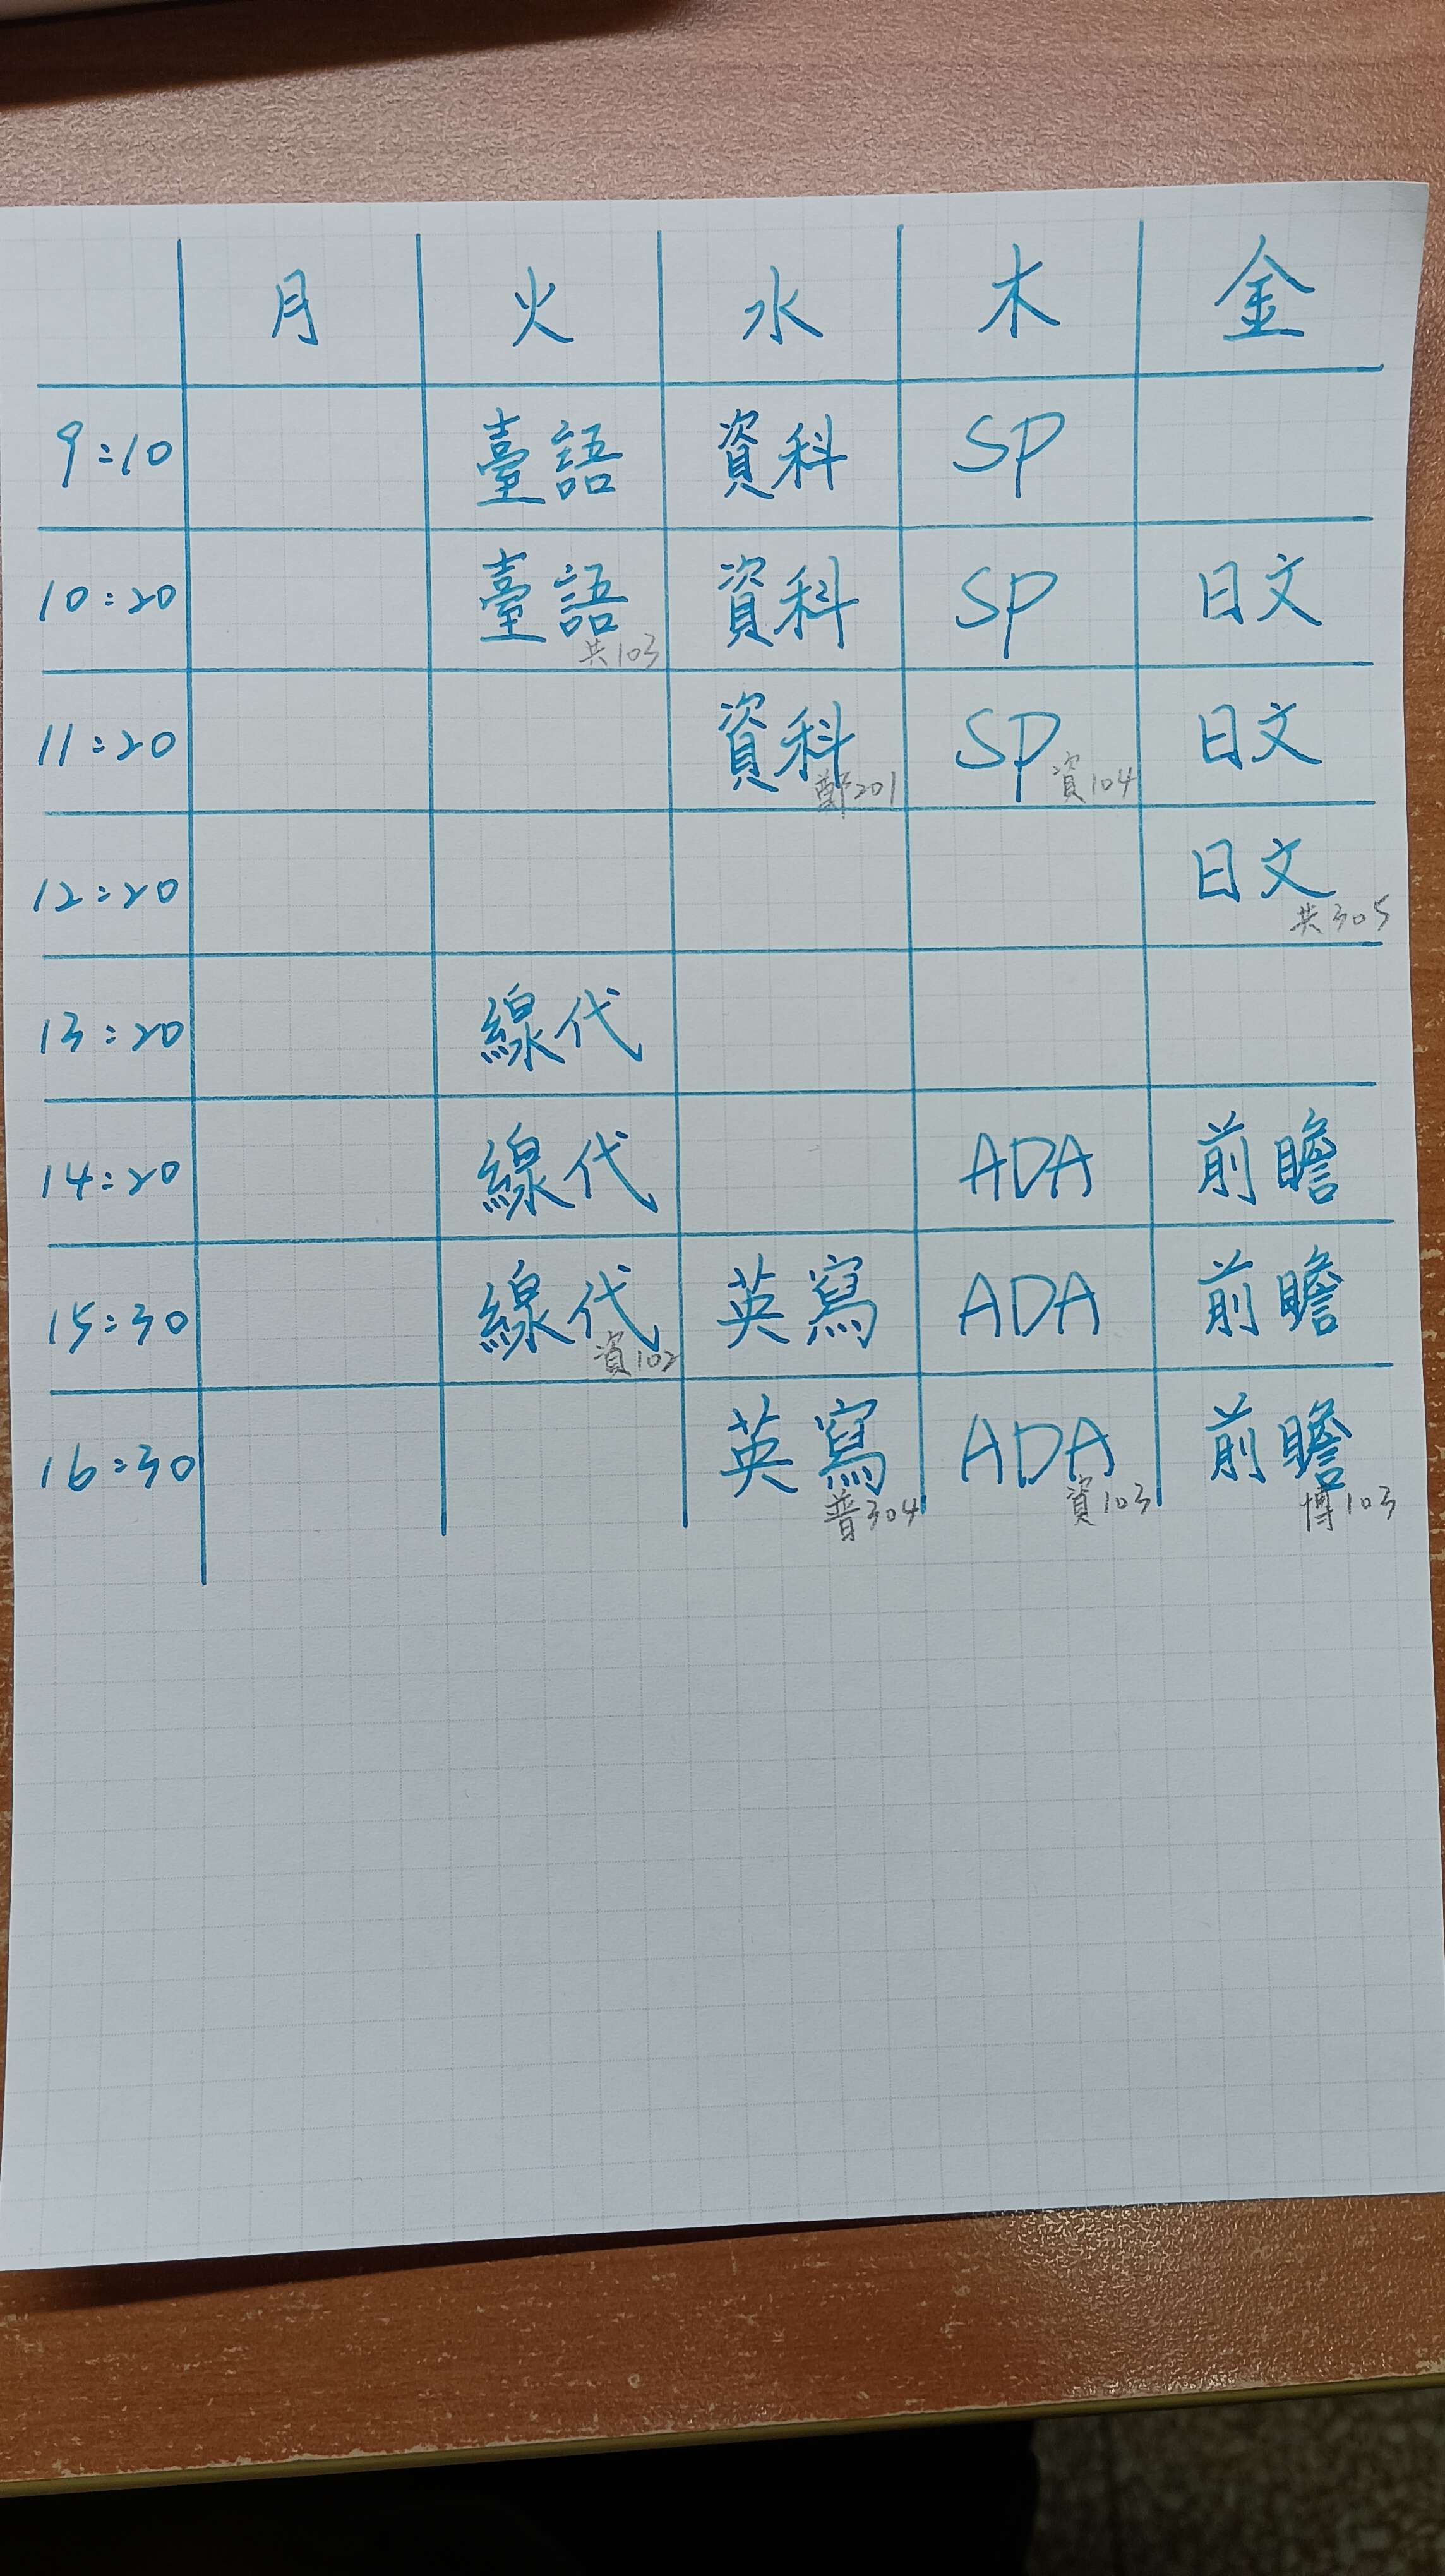 月 火 水 木 金
9:10 臺語 資科 SP
10:20 臺語 資科 SP 日文
共103
11:20 資科 SP 日文
鄭201 資104
12:20 日文
共305
13:20 線代
14:20 線代 ADA 前瞻
15:30 線代 英寫 ADA 前瞻
資102
16:30 英寫 ADA 前瞻
普304 資103 博103